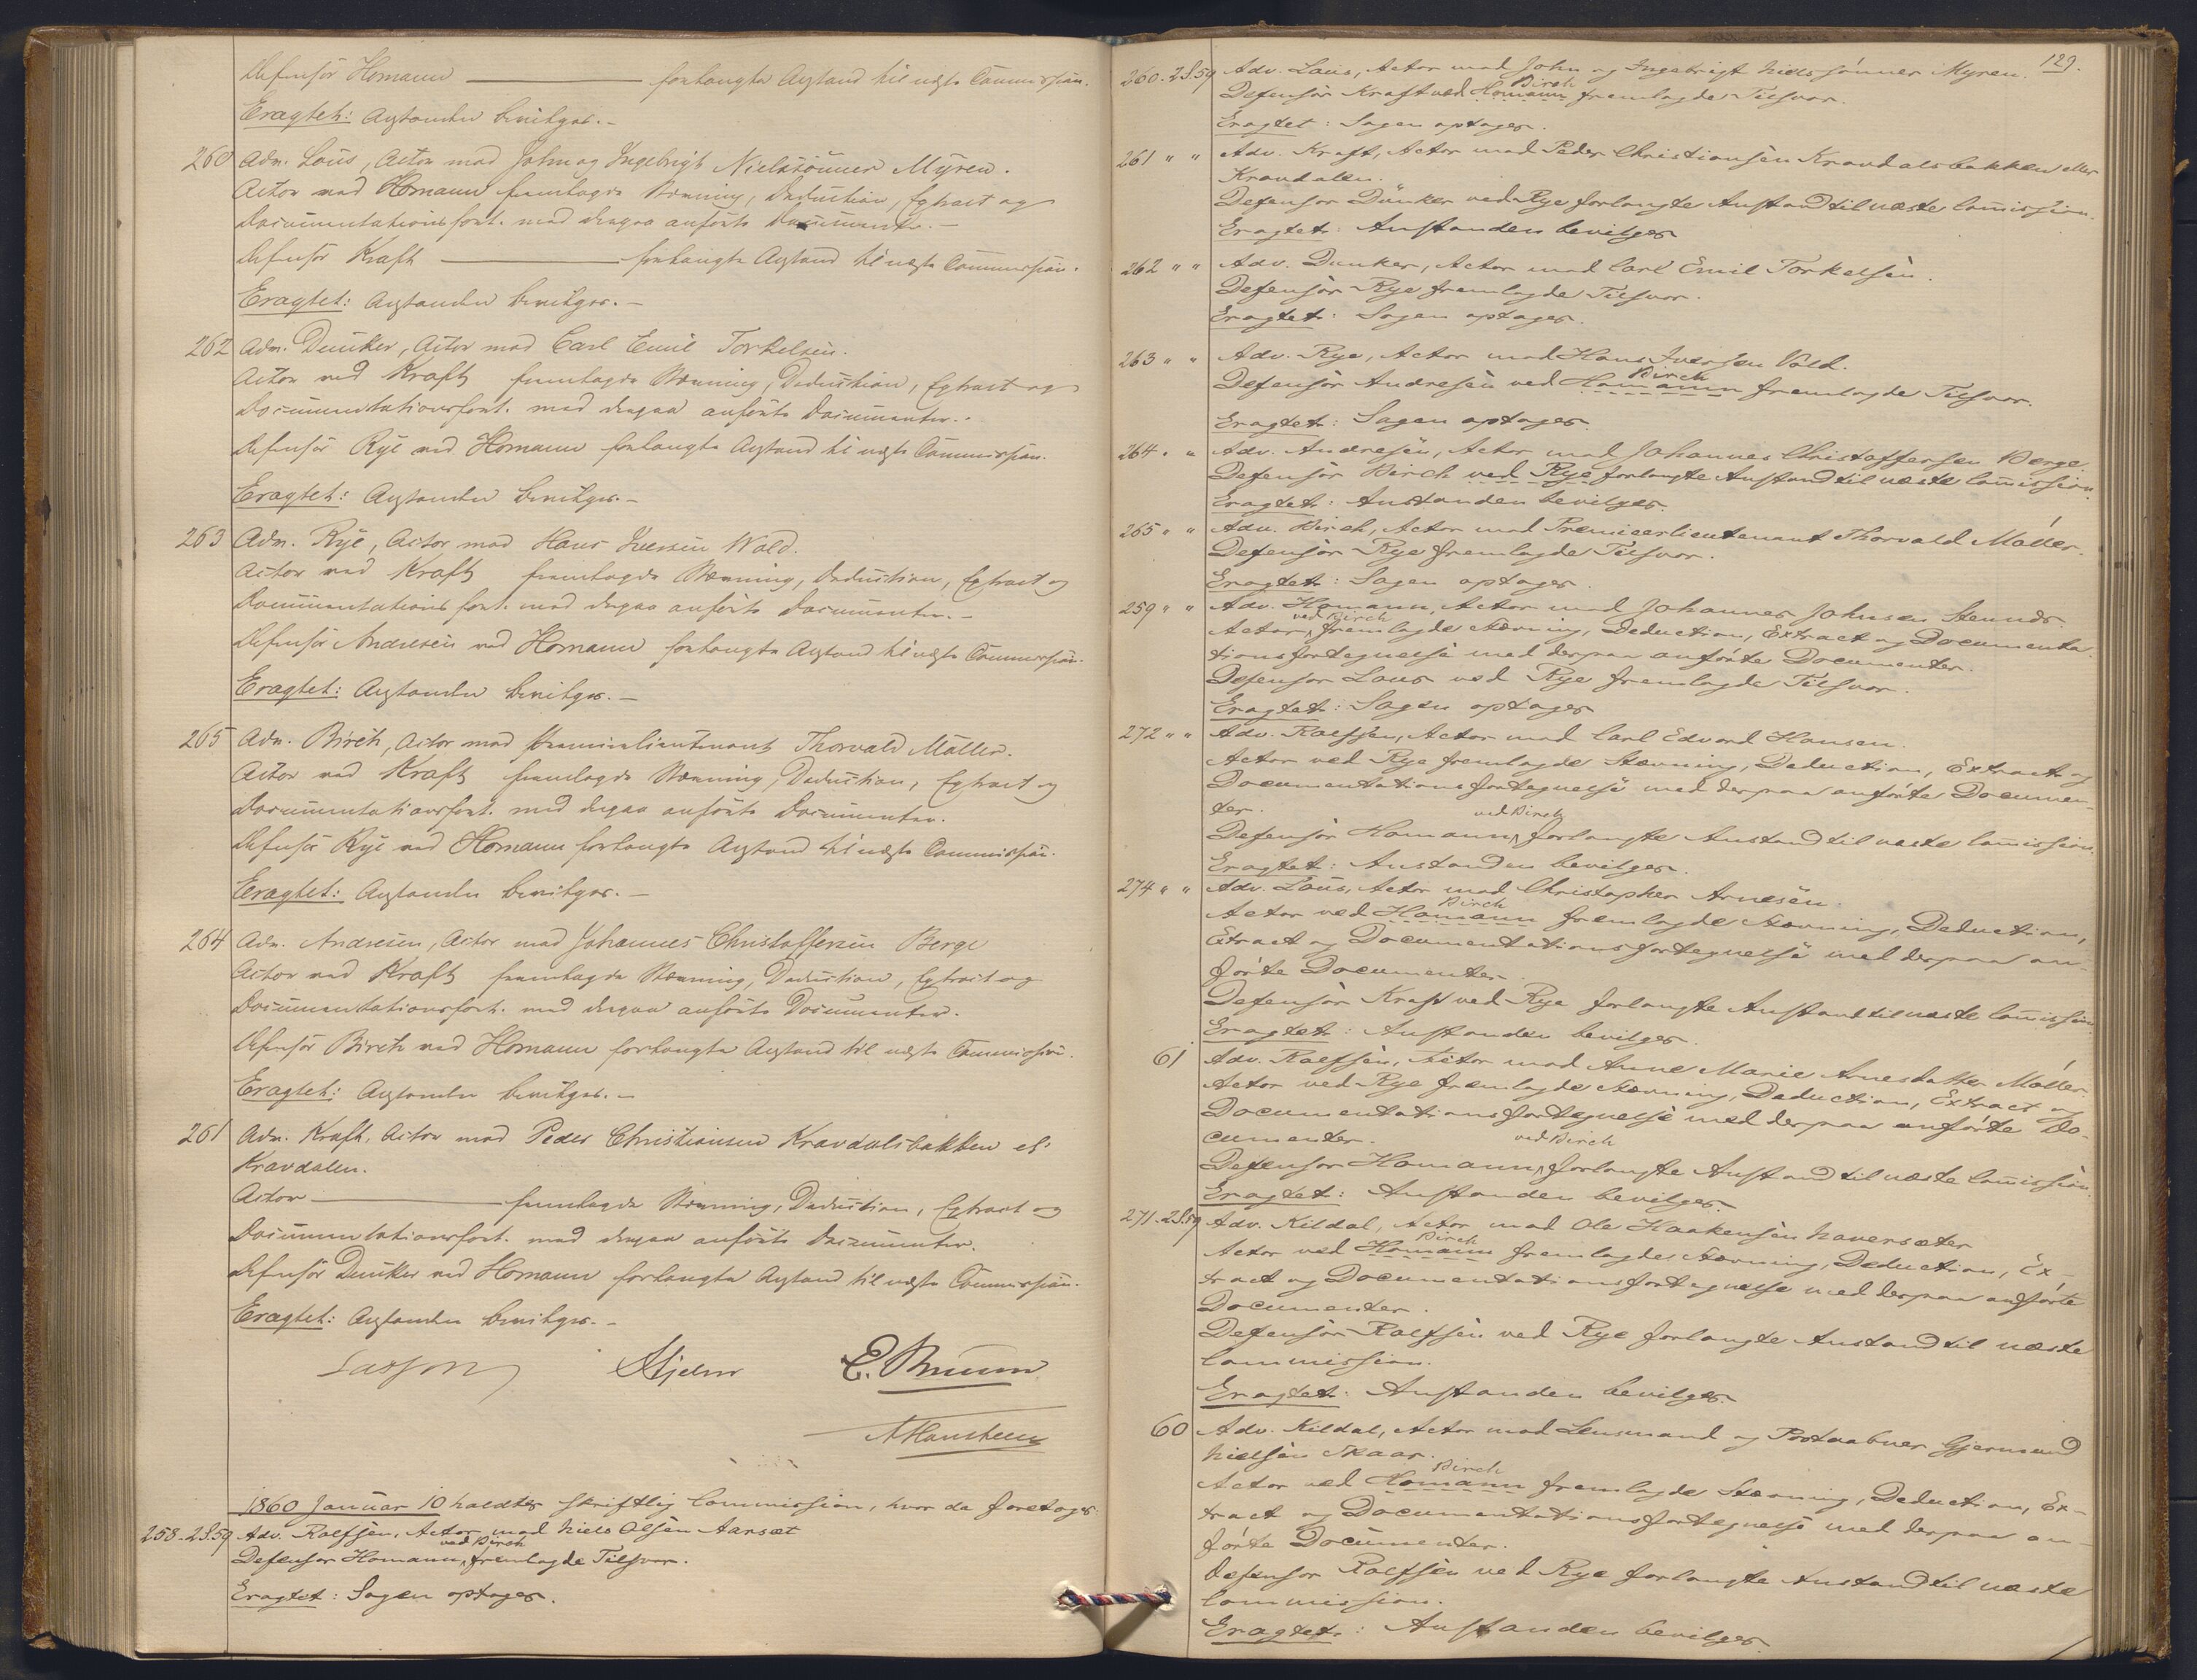 Defensor Homann ——— forlangte Anstand til næste Commission.
Eragtet: Anstanden bevilges.-
260 Adv. Lous, Actor mod John og Ingebrigt Nielssönner Myren.
Actor ved Homann fremlagde Stævning, Deduction, Extract og
Documentationsfort. med derpaa anförte Documenter.-
Defensor Kraft ——— forlangte Anstand til næste Commission.
Eragtet: Anstanden bevilges.-
262 Adv. Dunker, Actor mod Carl Emil Torkelsen.
Actor ved Kraft fremlagde Stævning, Deduction, Extract og
Documentationsfort. med derpaa anförte Documenter.-
Defensor Rye ved Homann forlangte Anstand til næste Commission.
Eragtet: Anstanden bevilges.-
263 Adv. Rye, Actor mod Hans Iversen Wold.
Actor ved Kraft fremlagde Stævning, Deduction, Extract og
Documentationsfort. med derpaa anförte Documenter.-
Defensor Andresen ved Homann forlangte Anstand til næste Commission.
Eragtet: Anstanden bevilges.-
265 Adv. Birch, Actor mod Premierlieutenant Thorvald Möller.
Actor ved Kraft fremlagde Stævning, Deduction, Extract og
Documentationsfort. med derpaa anförte Documenter.
Defensor Rye ved Homann forlangte Anstand til næste Commission.
Eragtet: Anstanden bevilges.-
264 Adv. Andresen, Actor mod Johannes Christoffersen Berge
Actor ved Kraft fremlagde Stævning, Deduction, Extract og
Documentationsfort. med derpaa anförte Documenter.
Defensor Birch ved Homann forlangte Anstand til næste Commission.
Eragtet: Anstanden bevilges.-
261 Adv. Kraft, Actor mod Peder Christiansen Kravdalsbakken el.
Kravdalen.
Actor ——— fremlagde Stævning, Deduction, Extract og
Documentationsfort. med derpaa anförte Documenter.
Defensor Dunker ved Homann forlangte Anstand til næste Commission.
Eragtet: Anstanden bevilges.-
Lasson Hjelm E. Bruun
Hansteen
1860 Januar 10 holdtes skriftlig Commission, hvor da foretoges:
258-2S.59 Adv. Rolfsen, Actor mod Niels Olsen Aarsæt
ved Birch
Defensor Homann, fremlagde Tilsvar.
Eragtet: Sagen optages.
129.
260-2S.59 Adv. Lous, Actor mod John og Ingebrigt Nielssönner Myren.
Birch
Defensor Kraft ved Homann fremlagde Tilsvar.
Eragtet: Sagen optages.
261 " " Adv. Kraft, Actor mod Peder Christiansen Kravdalsbakken eller
Kravdalen.
Defensor Dunker ved Rye forlangte Anstand til næste Com̅ission.
Eragtet: Anstanden bevilges
262 " " Adv. Dunker, Actor mod Carl Emil Torkelsen.
Defensor Rye fremlagde Tilsvar.
Eragtet: Sagen optages.
263 " " Adv. Rye, Actor mod Hans Iversen Vold.
Birch
Defensor Andresen ved Homann fremlagde Tilsvar.
Eragtet: Sagen optages.
264 " " Adv. Andresen, Actor mod Johannes Christoffersen Berge.
Defensor Birch ved Rye forlangte Anstand til næste Com̅ission.
Eragtet: Anstanden bevilges.
265 " " Adv. Birch, Actor mod Premierlieutenant Thorvald Möller.
Defensor Rye fremlagde Tilsvar.
Eragtet: Sagen optages.
259 " " Adv. Homann, Actor mod Johannes Johnsen Stunds.
ved Birch
Actor, fremlagde Stævning, Deduction, Extract og Documenta-
tionsfortegnelse med derpaa anförte Documenter.
Defensor Lous ved Rye fremlagde Tilsvar.
Eragtet: Sagen optages
272 " " Adv. Rolfsen, Actor mod Carl Edvard Hansen.
Actor ved Rye fremlagde Stævning, Deduction, Extract og
Documentationsfortegnelse med derpaa anförte Documen-
ter.
ved Birch
Defensor Homann, forlangte Anstand til næste Com̅ission.
Eragtet: Anstanden bevilges.
274 " " Adv. Lous, Actor mod Christopher Arnesen.
Birch
Actor ved Homann fremlagde Stævning, Deduction,
Extract og Documentationsfortegnelse med derpaa an-
förte Documenter.
Defensor Kraft ved Rye forlangte Anstand til næste Com̅ission.
Eragtet: Anstanden bevilges.
61 Adv. Rolfsen, Actor mod Anne Marie Arnesdatter Möller.
Actor ved Rye fremlagde Stævning, Deduction, Extract og
Documentationsfortegnelse med derpaa anförte Do-
cumenter.
ved Birch
Defensor Homann, forlangte Anstand til næste Com̅ission.
Eragtet: Anstanden bevilges.
271-2S.59 Adv. Kildal, Actor mod Ole Haakensen Haversæter
Birch
Actor ved Homann fremlagde Stævning, Deduction, Ex-
tract og Documentationsfortegnelse med derpaa anförte
Documenter.
Defensor Rolfsen ved Rye forlangte Anstand til næste
Commission.
Eragtet: Anstanden bevilges.
60 Adv. Kildal, Actor mod Lensmand og Postaabner Gjermund
Nielsen Skaar.
Birch
Actor ved Homann fremlagde Stævning, Deduction, Ex-
tract og Documentationsfortegnelse med derpaa an-
förte Documenter.
Defensor Rolfsen ved Rye forlangte Anstand til næste
Commission.
Eragtet: Anstanden bevilges.